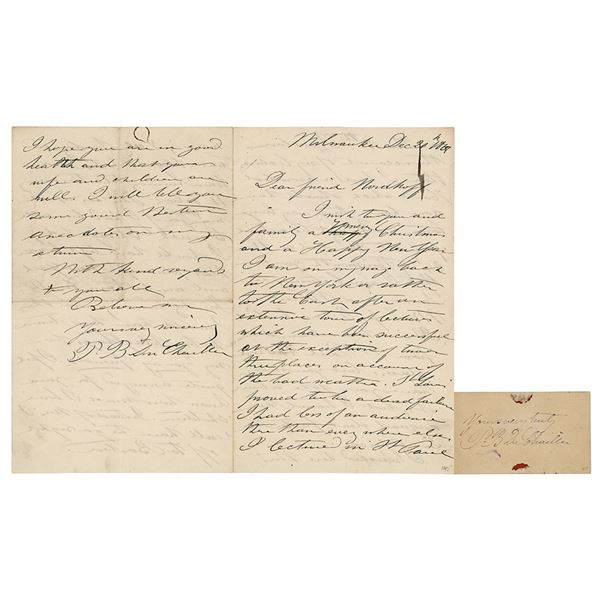 Milwaukee Dec
Dear friend Nordhoff
I wish to you and
family a merry Christmas
and a Happy New Year
I am on my way back
to New York or rather
to the East, after an
extensive tour of lectures
which have been successful
at the exception of two or
three places on account of
the bad weather. St Louis
proved to be a dead failure
I had less of an audience
there than every where else
I lectured in St Paul
I hope you are in good
health and that your
wife and children are
well. I will tell you
some good Western
anecdotes on my
return
With kind regards
to you all
Believe me
Yours very sincerely
P. B Du Chaillu
Yours very truly
P. B Du Chaillu